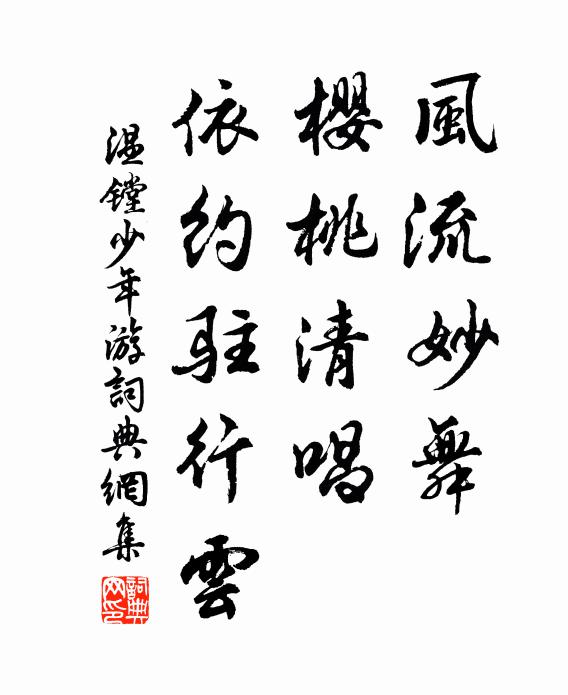 風流妙舞
櫻桃清唱
依約駐行雲
温镗少年游詞典網集
詞典网印